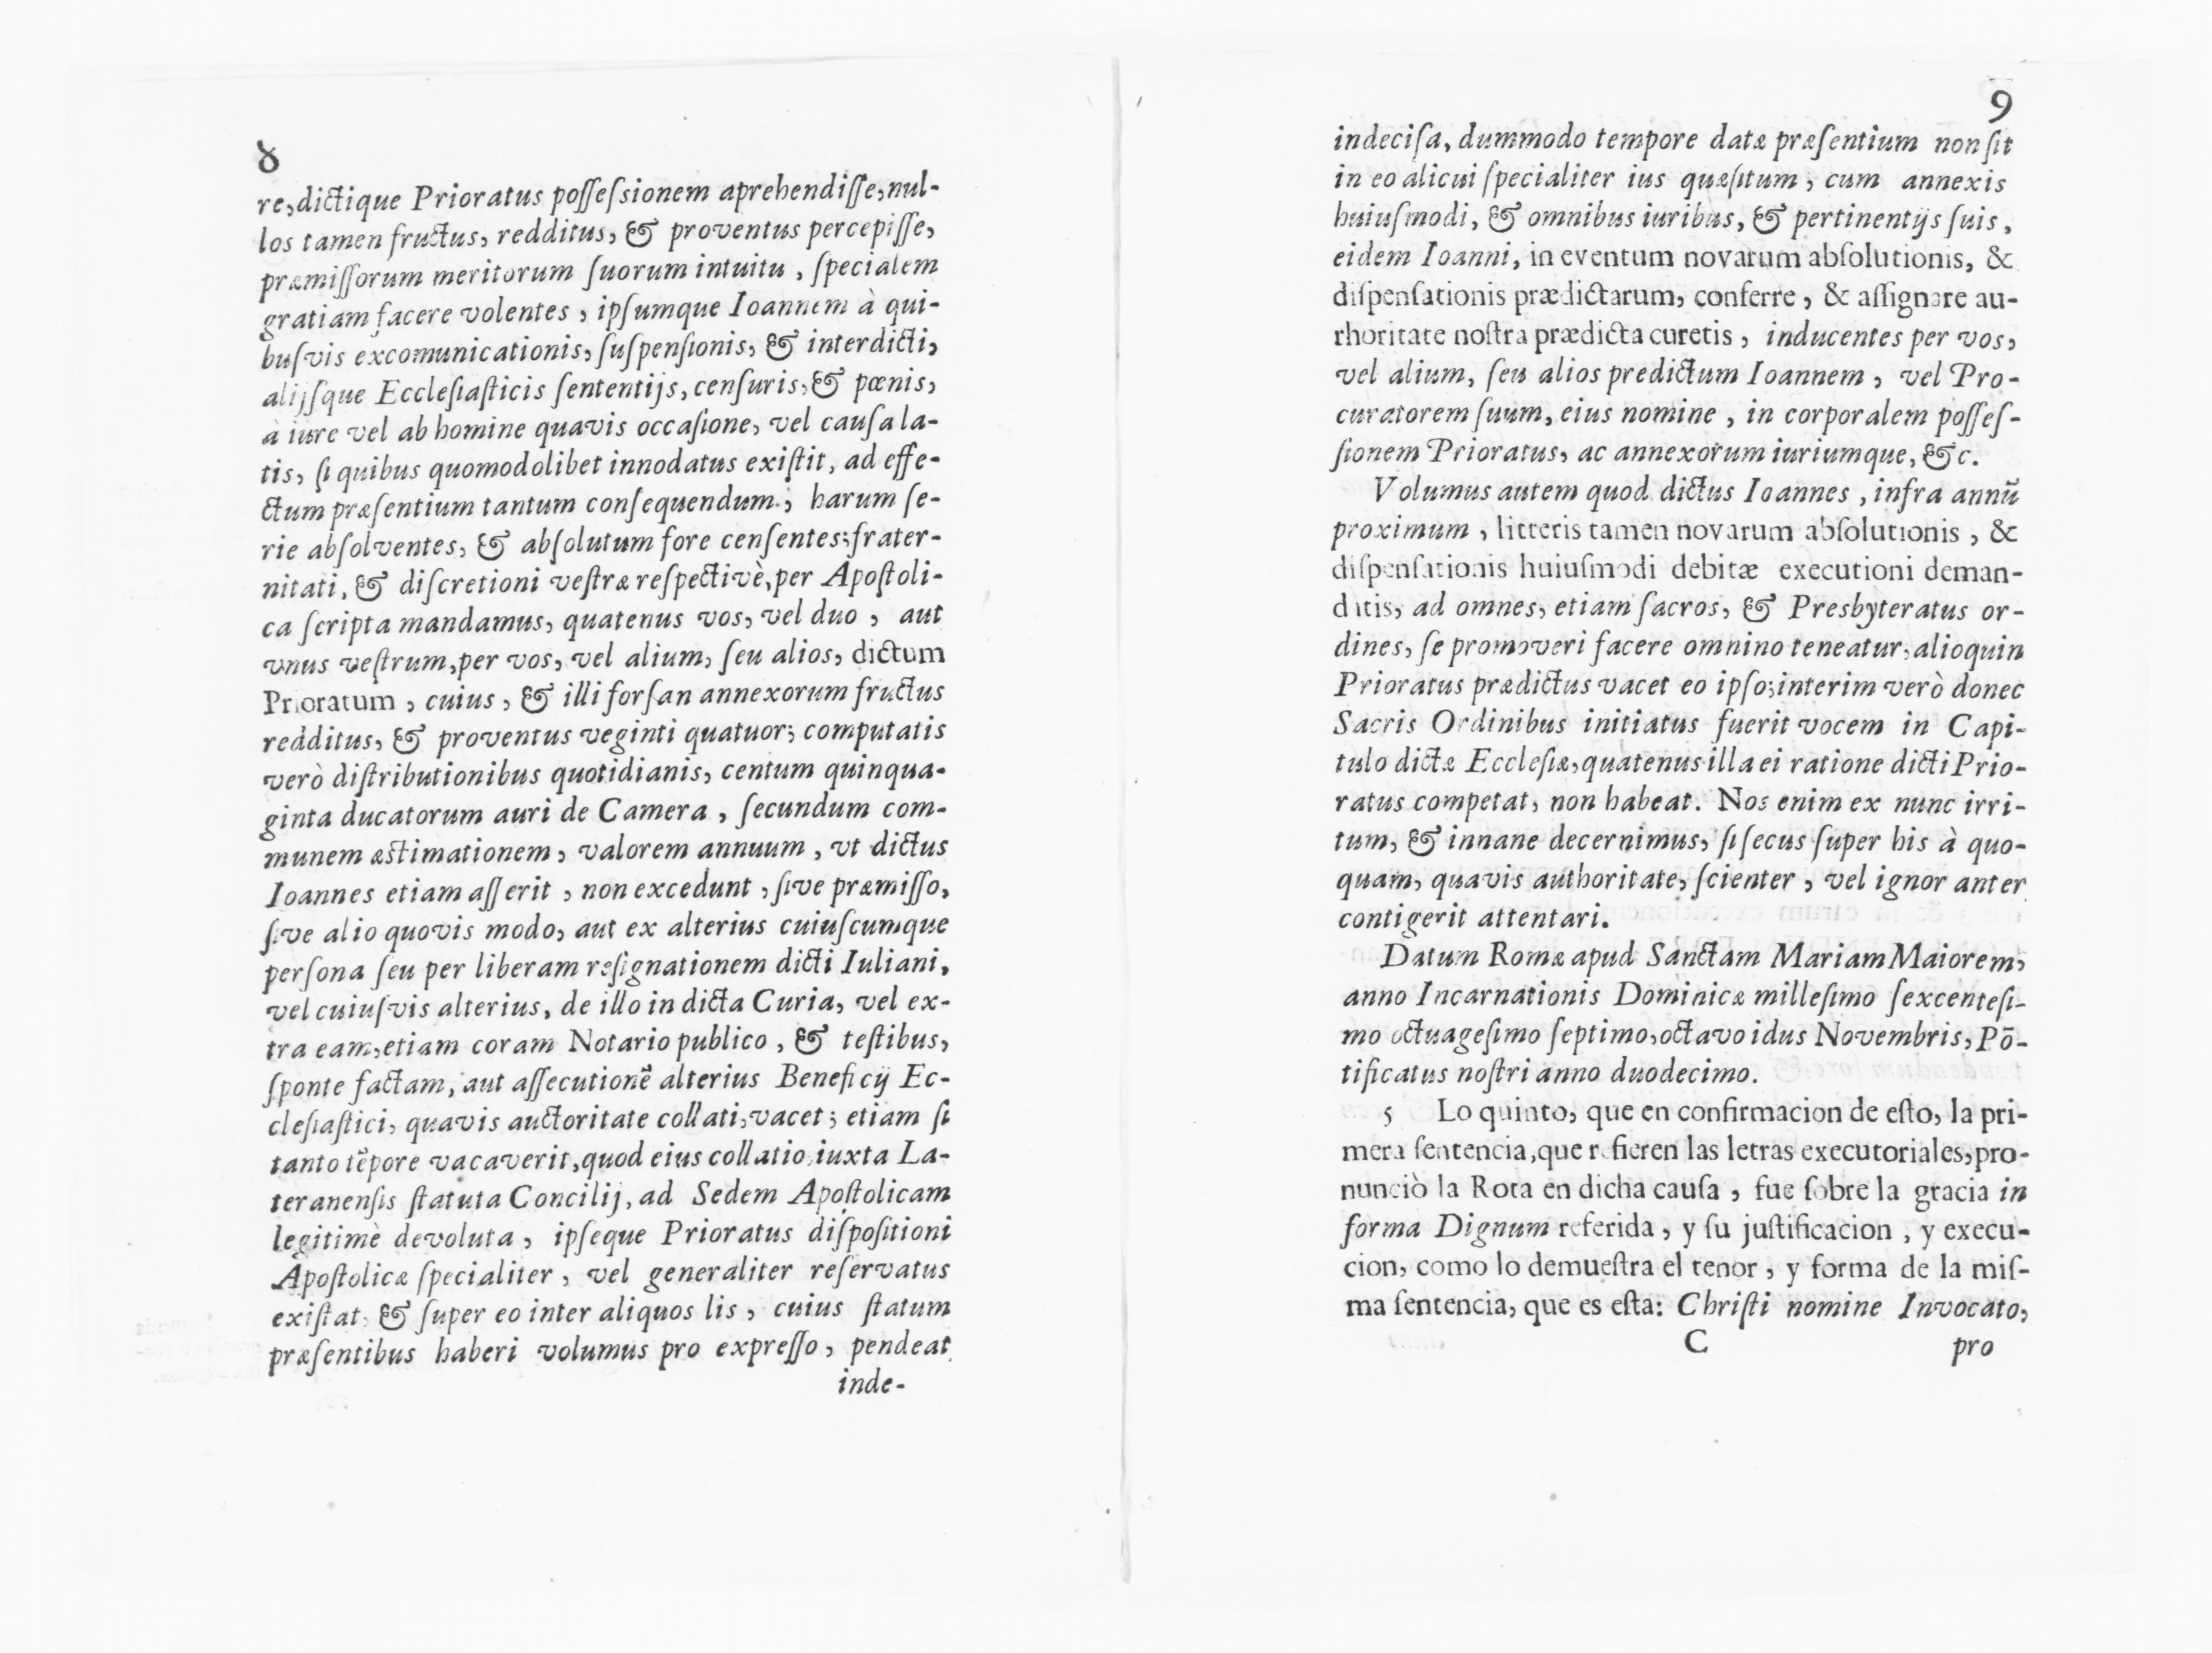 8
re, dictique Prioratus possessionem aprehendisse, nul-
los tamen fructus, redditus, & proventus percepisse,
præmissorum meritorum suorum intuitu, specialem
gratiam facere volentes, ipsumque Ioannem à qui-
busvis excomunicationis, suspensionis, & interdicti,
alijsque Ecclesiasticis sententijs, censuris, & pœnis,
à iure vel ab homine quavis occasione, vel causa la-
tis, si quibus quomodolibet innodatus existit, ad effe-
ctum præsentium tantum consequendum; harum se-
rie absolventes, & absolutum fore censentes; frater-
nitati, & discretioni vestræ respectivè, per Apostoli-
ca scripta mandamus, quatenus vos, vel duo, aut
vnus vestrum, per vos, vel alium, seu alios, dictum
Prioratum, cuius, & illi forsan annexorum fructus
redditus, & proventus veginti quatuor; computatis
verò distributionibus quotidianis, centum quinqua-
ginta ducatorum auri de Camera, secundum com-
munem æstimationem, valorem annuum, vt dictus
Ioannes etiam asserit, non excedunt, sive præmisso,
sive alio quovis modo, aut ex alterius cuiuscumque
persona seu per liberam resignationem dicti Iuliani,
vel cuiusvis alterius, de illo in dicta Curia, vel ex-
tra eam, etiam coram Notario publico, & testibus,
sponte factam, aut assecutionẽ alterius Beneficij Ec-
clesiastici, quavis auctoritate collati, vacet; etiam si
tanto tẽpore vacaverit, quod eius collatio iuxta La-
teranensis statuta Concilij, ad Sedem Apostolicam
legitimè devoluta, ipseque Prioratus dispositioni
Apostolicæ specialiter, vel generaliter reservatus
existat, & super eo inter aliquos lis, cuius statum
præsentibus haberi volumus pro expresso, pendeat
inde-
9
indecisa, dummodo tempore datæ præsentium non sit
in eo alicui specialiter ius quæsitum, cum annexis
huiusmodi, & omnibus iuribus, & pertinentijs suis,
eidem Ioanni, in eventum novarum absolutionis, &
dispensationis prædictarum, conferre, & assignare au-
thoritate nostra prædicta curetis, inducentes per vos,
vel alium, seu alios predictum Ioannem, vel Pro-
curatorem suum, eius nomine, in corporalem posses-
sionem Prioratus, ac annexorum iuriumque, &c.
Volumus autem quod dictus Ioannes, infra annũ
proximum, litteris tamen novarum absolutionis, &
dispensationis huiusmodi debitæ executioni deman-
datis, ad omnes, etiam sacros, & Presbyteratus or-
dines, se promoveri facere omnino teneatur, alioquin
Prioratus prædictus vacet eo ipso; interim verò donec
Sacris Ordinibus initiatus fuerit vocem in Capi-
tulo dictæ Ecclesiæ, quatenus illa ei ratione dicti Prio-
ratus competat, non habeat. Nos enim ex nunc irri-
tum, & innane decernimus, si secus super his à quo-
quam, quavis authoritate, scienter, vel ignoranter
contigerit attentari.
Datum Romæ apud Sanctam Mariam Maiorem,
anno Incarnationis Dominicæ millesimo sexcentesi-
mo octuagesimo septimo, octavo idus Novembris, Põ-
tificatus nostri anno duodecimo.
5 Lo quinto, que en confirmacion de esto, la pri-
mera sentencia, que refieren las letras executoriales, pro-
nunciò la Rota en dicha causa, fue sobre la gracia in
forma Dignum referida, y su justificacion, y execu-
cion, como lo demuestra el tenor, y forma de la mis-
ma sentencia, que es esta: Christi nomine Invocato,
C pro